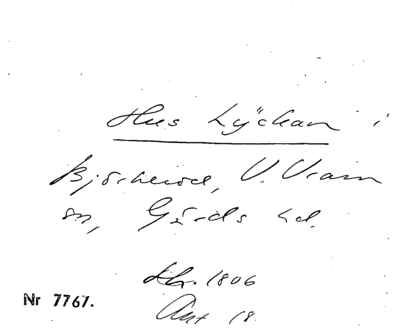 Hus Lyckan i
Björkeröd, V. Vram
sn, Gärds hd.
Skr. 1806
Ant 18.
Nr 7767.